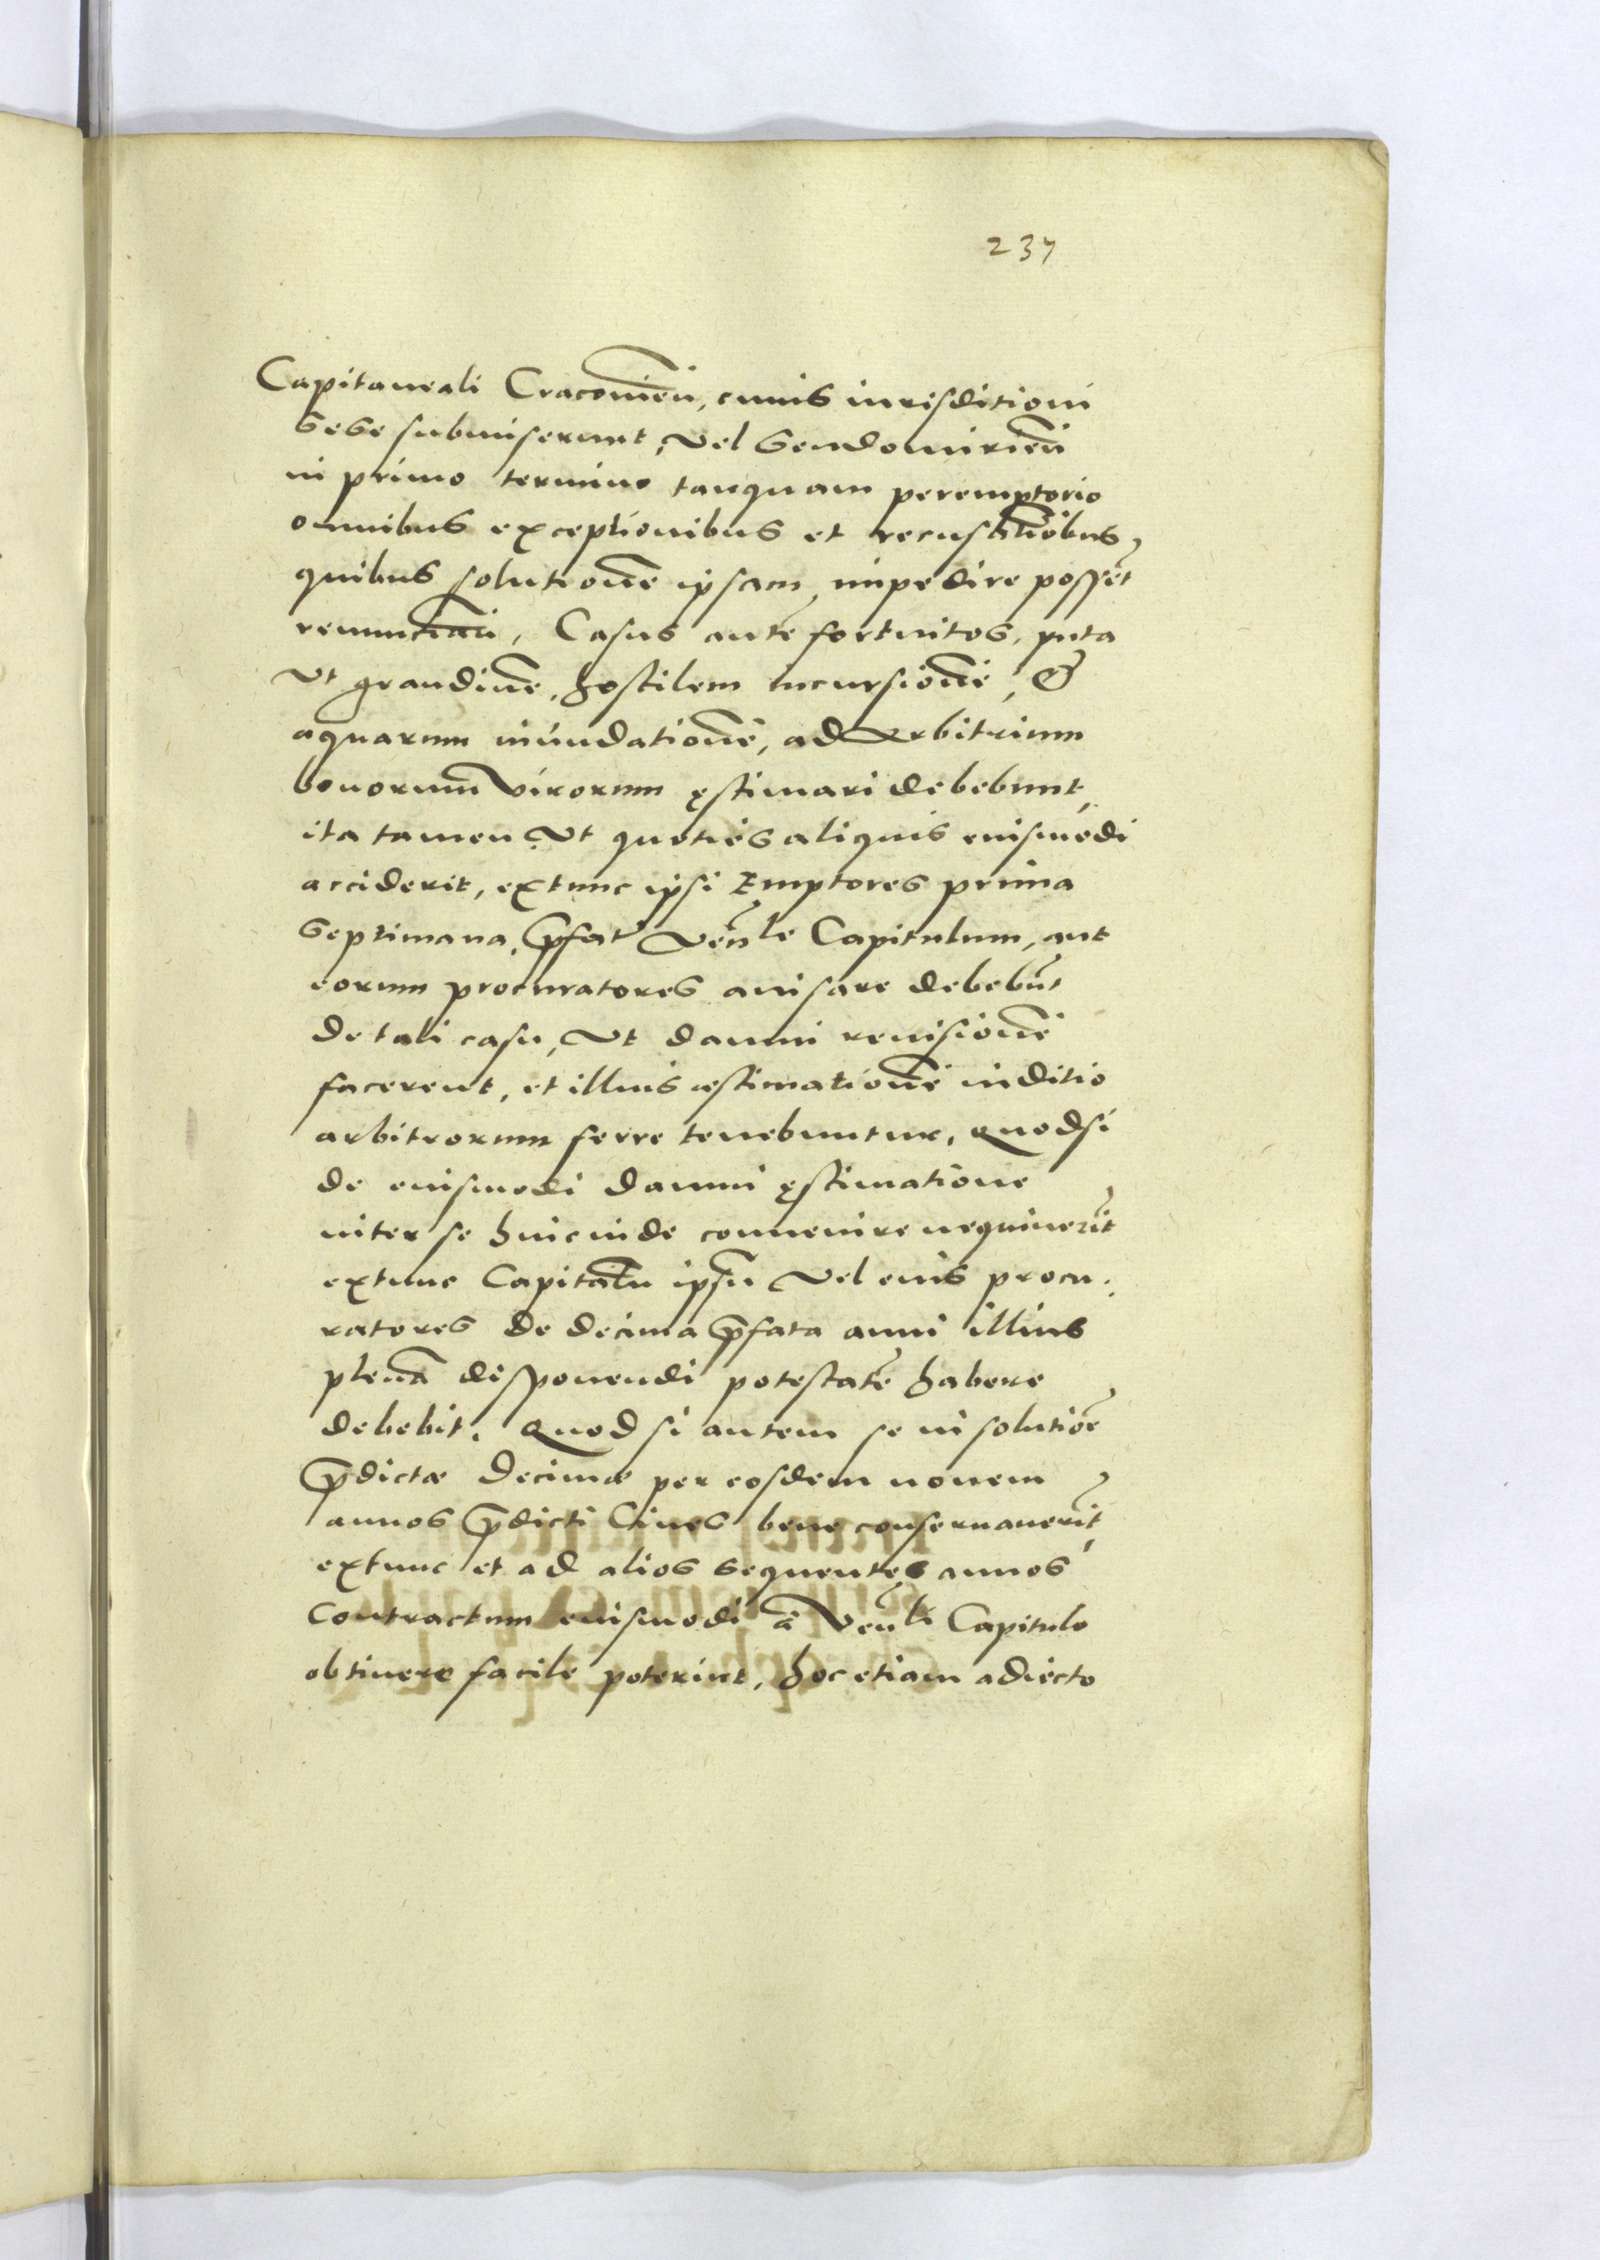 237
Capitaneali Cracouien̄, cuius iurisditioni
sese submiserunt, vel Sendomirien̄
in primo termino tanquam peremptorio
omnibus exceptionibus et recusatiōibus,
quibus solutionē ipsam impedire possēt
renunciañ, Casus autē fortuitos, puta
Vt grandinē, hostilem incursionē, &
aquarum inundationē, ad arbitrium
bonorum virorum ęstimari debebunt,
ita tamen, Vt quoties aliquis eiusmodi
acciderit, extunc ipsi Emptores prima
septimana, p̄fat Ven̄le Capitulum, aut
eorum procuratores auisare debebūt
de tali casu, Vt damni reuisionē
facerent, et illius æstimationē iuditio
arbitrorum ferre tenebuntur, Quodsi
de eiusmodi damni ęstimatione
inter se hincinde conuenire nequiuerīt
extunc Capitulū ipsū vel eius procu.
ratores de decima p̄fata anni illius
plenā disponendi potestatē habere
debebit. Quod si autem se in solutiōe
p̄dictæ Decimæ per eosdem nouem
annos p̄dicti Ciues bene conseruauerīt,
extunc et ad alios sequentes annos
Contractum eiusmodi à Ven̄li Capitulo
obtinere facile poterint, hoc etiam adiecto